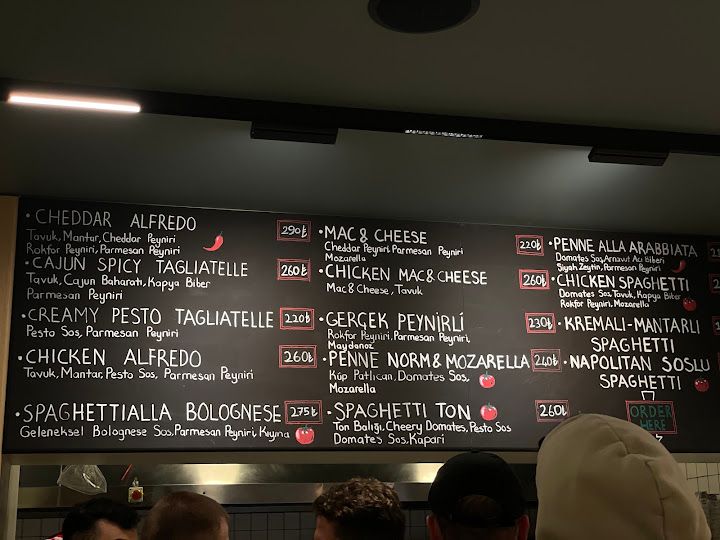 • CHEDDAR ALFREDO 290₺
Tavuk, Mantar, Cheddar Peyniri
Rokfor Peyniri, Parmesan Peyniri
• CAJUN SPICY TAGLIATELLE 260₺
Tavuk, Cajun Baharatı, Kapya Biber
Parmesan Peyniri
• CREAMY PESTO TAGLIATELLE 220₺
Pesto Sos, Parmesan Peyniri
• CHICKEN ALFREDO 260₺
Tavuk, Mantar, Pesto Sos, Parmesan Peyniri
• SPAGHETTIALLA BOLOGNESE 275₺
Geleneksel Bolognese Sos, Parmesan Peyniri, Kıyma
• MAC & CHEESE 220₺
Cheddar Peyniri Parmesan Peyniri
Mozarella
• CHICKEN MAC & CHEESE 260₺
Mac & Cheese, Tavuk
• GERÇEK PEYNİRLİ 230₺
Rokfor Peyniri, Parmesan Peyniri,
Maydanoz
• PENNE NORM & MOZARELLA 240₺
Küp Patlıcan, Domates Sos,
Mozarella
• SPAGHETTI TON 260₺
Ton Balığı, Cheery Domates, Pesto Sos
Domates Sos, Kapari
• PENNE ALLA ARABBIATA
Domates Sos, Arnavut Acı Biberi
Siyah Zeytin, Parmesan Peyniri
• CHICKEN SPAGHETTI
Domates Sos, Tavuk, Kapya Biber
Rokfor Peyniri, Mozarella
• KREMALI-MANTARLI
SPAGHETTI
• NAPOLITAN SOSLU
SPAGHETTI
ORDER
HERE